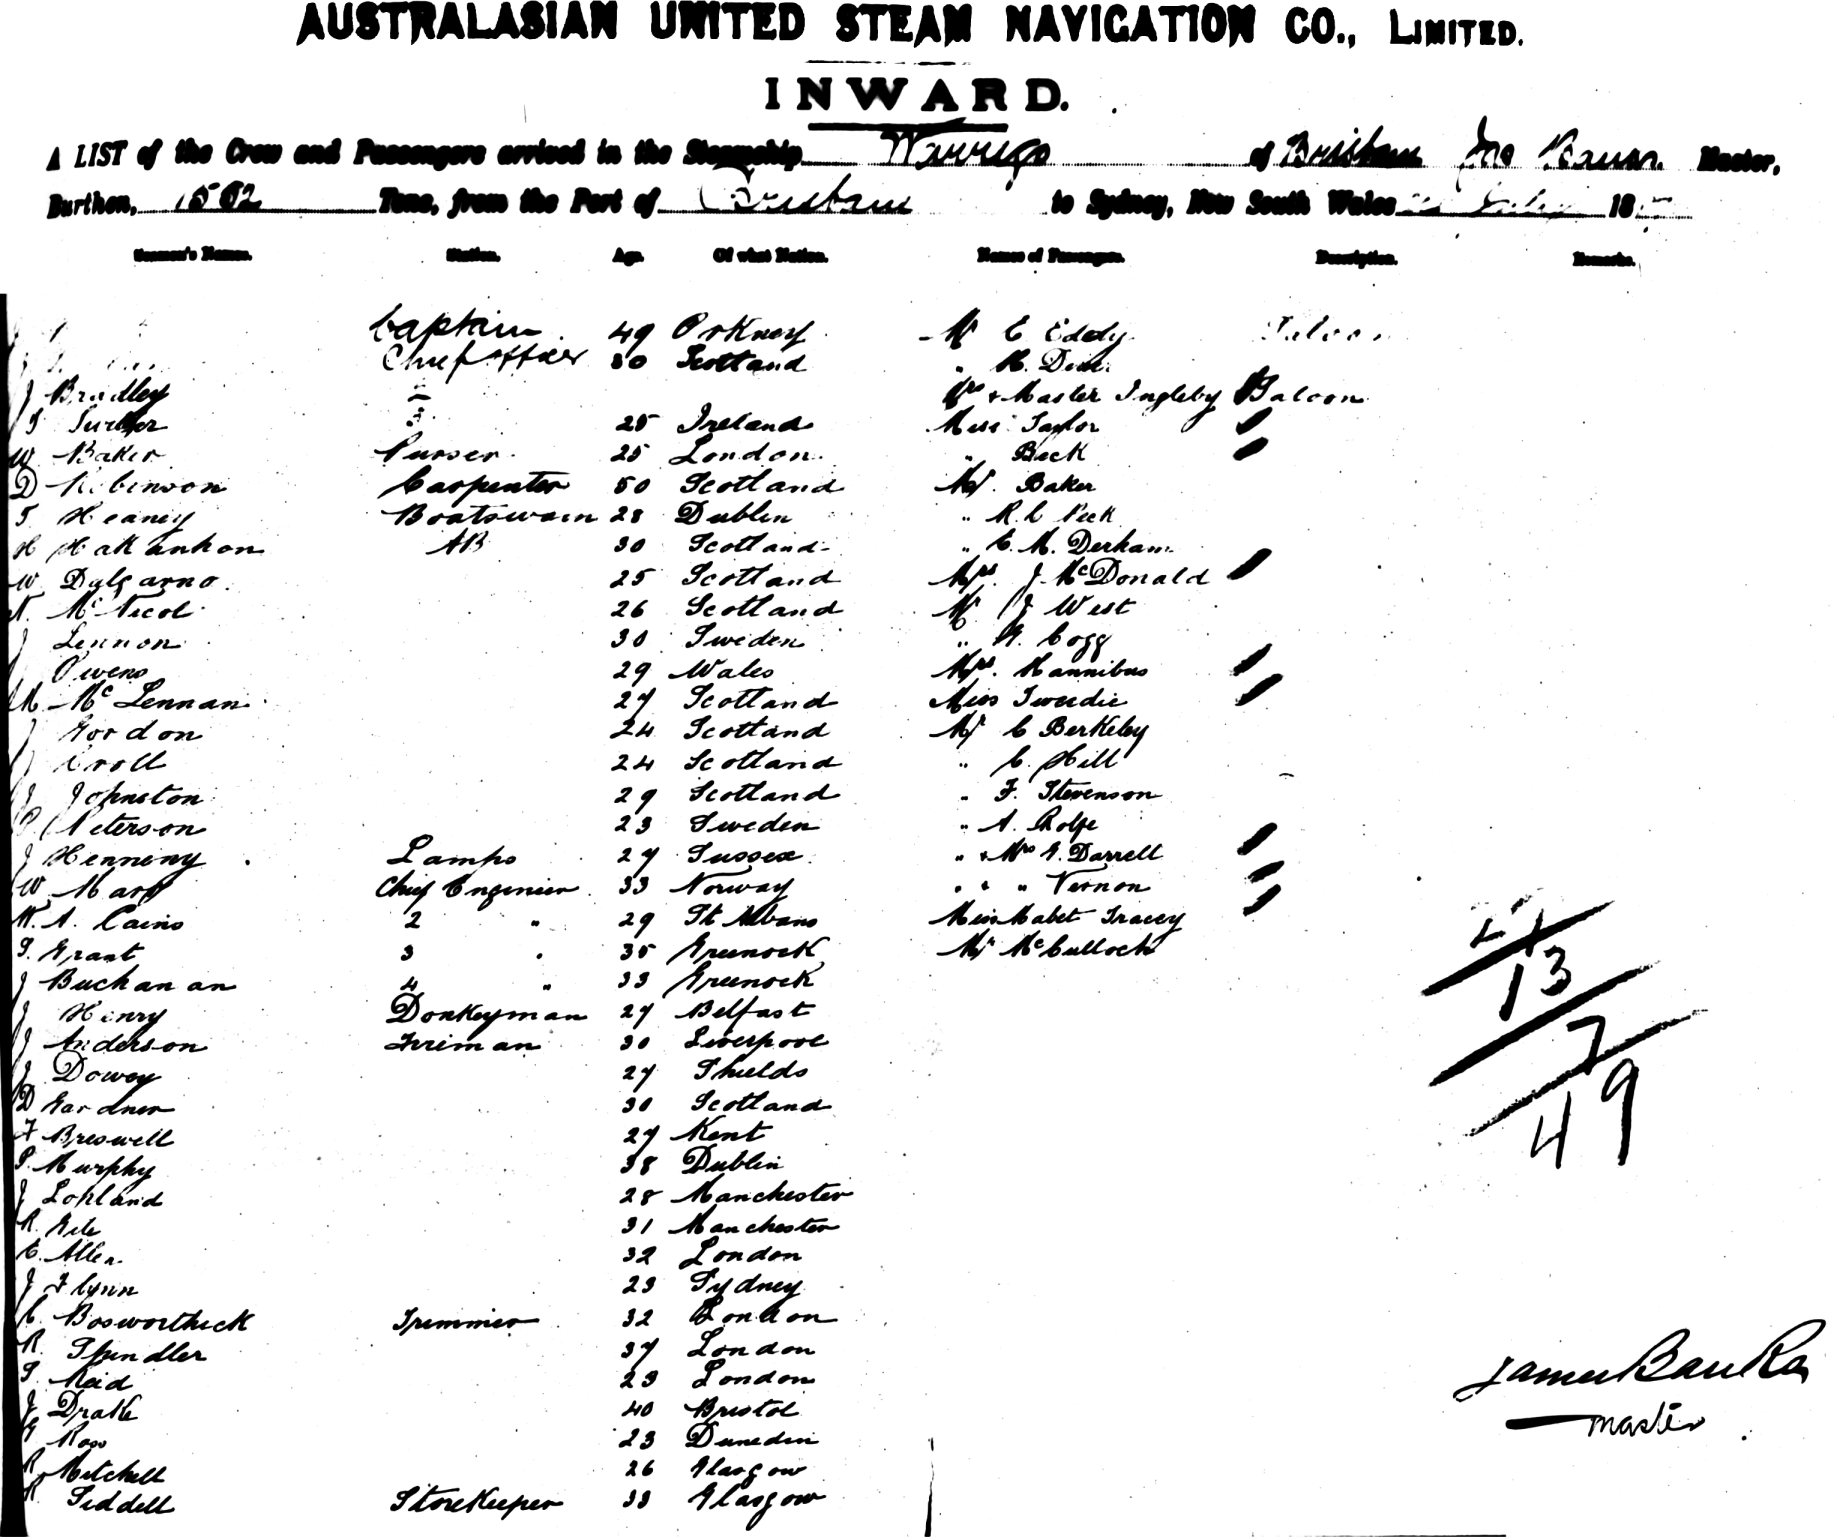 AUSTRALASIAN UNITED STEAM NAVIGATION CO., LIMITED.
INWARD.
A LIST of the Crew and Passengers arrived in the Steamship Warrego of Brisbane Master,
Burthen, 1592 Tons, from the Port of Brisbane to Sydney, New South Wales 18
Seamen's Names. Station. Age. Of what Nation. Names of Passengers. Description. Remarks.
Captain 49 Orkney Mr C Eddy Saloon
Chief officer 30 Scotland "
J Bradley 2 Mrs + Master Ingleby Saloon
T 3 25 Ireland Miss Taylor
W Baker Purser 25 London " Beck
D Robinson Carpenter 50 Scotland Mr. Baker
T Heaney Boatswain 28 Dublin " R. C Peek
H Hakanhon AB 30 Scotland " C. M. Derham
W Dalgarno 25 Scotland Mrs. J. McDonald
N. McNicol 26 Scotland Mr J West
J Lennon 30 Sweden " G. Cogg
Owens 29 Wales Mrs. Hannibus
M McLennan 27 Scotland Miss Tweedie
J Gordon 24 Scotland Mr C Berkeley
J Croll 24 Scotland " C. Hill
J Johnston 29 Scotland " F. Stevenson
P. Peterson 23 Sweden " A. Rolfe
J Henneny Lamps 27 Sussex " + Mrs G. Darrell
W Marr Chief Engenier 33 Norway " + " Vernon
W. A. Cains 2 " 29 St Albans Miss Mabel Tracey
T. Grant 3 " 35 Greenock Mr McCullock
J Buchanan 4 " 33 Greenock
J Henry Donkeyman 27 Belfast
J Anderson Firiman 30 Liverpool
J Dowey 27 Shields
D Gardner 30 Scotland
F Breswell 27 Kent
P. Murphy 38 Dublin
J Lopland 28 Manchester
R. Gile 31 Manchester
C. Allen 32 London
J Flynn 23 Sydney
C. Bosworthick Trimmer 32 London
R. Spindler 37 London
T. Reid 23 London
J Drake 40 Bristol
G Ross 23 Dunedin
R Mitchell 26 Glasgow
R. Siddell Storekeeper 33 Glasgow
13
7
49
James Banks
master